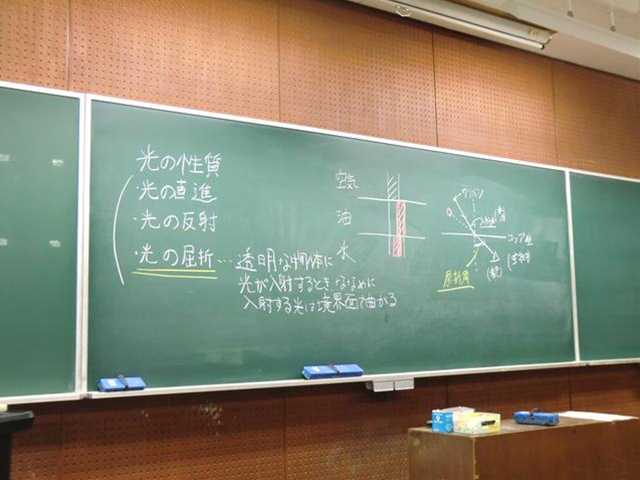 光の性質
・光の直進
・光の反射
・光の屈折…透明な物体に
光が入射するとき ななめに
入射する光は境界面で曲がる
空気
油
水
屈折角